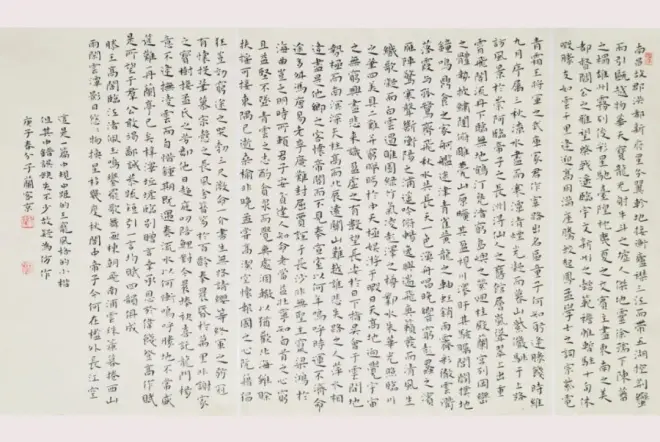 南昌故郡洪都新府星分翼軫地接衡廬襟三江而帶五湖控荊蠻
而引甌越物華天寶龍光射牛斗之墟人傑地靈徐孺下陳蕃
之榻雄州霧列俊彩星馳臺隍枕夷夏之交賓主盡東南之美
都督閻公之雅望棨戟遙臨宇文新州之懿範襜帷暫駐十旬休
暇勝友如雲千里逢迎高朋滿座騰蛟起鳳孟學士之詞宗紫電
青霜王將軍之武庫家君作宰路出名區童子何知躬逢勝餞時維
九月序屬三秋潦水盡而寒潭清煙光凝而暮山紫儼驂騑于上路
訪風景於崇阿臨帝子之長洲得仙人之舊館層巒聳翠上出重
霄飛閣流丹下臨無地鶴汀鳧渚窮島嶼之縈迴桂殿蘭宮列岡巒
之體勢披繡闥俯雕甍山原曠其盈視川澤盱其駭矚閭閻撲地
鐘鳴鼎食之家舸艦迷津青雀黃龍之舳虹銷雨霽彩徹雲衢
落霞與孤鶩齊飛秋水共長天一色漁舟唱晚響窮彭蠡之濱
雁陣驚寒聲斷衡陽之浦遙吟俯暢逸興遄飛爽籟發而清風生
纖歌凝而白雲遏睢園綠竹氣凌彭澤之樽鄴水朱華光照臨川
之筆四美具二難并窮睇眄於中天極娛遊于暇日天高地迥覺宇宙
之無窮興盡悲來識盈虛之有數望長安於日下指吳會于雲間地
勢極而南溟深天柱高而北辰遠關山難越誰悲失路之人萍水相
逢盡是他鄉之客懷帝閽而不見奉宣室以何年嗚呼時運不濟命
途多舛馮唐易老李廣難封屈賈誼于長沙非無聖主竄梁鴻於
海曲豈乏明時所賴君子安貧達人知命老當益壯寧知白首之心窮
且益堅不墜青雲之志酌貪泉而覺爽處涸轍以猶歡北海雖賒
扶搖可接東隅已逝桑榆非晚孟嘗高潔空懷報國之心阮籍猖
狂豈效窮途之哭勃三尺微命一介書生無路請纓等終軍之弱冠
有懷投筆慕宗慤之長風舍簪笏於百齡奉晨昏於萬里非謝家
之寶樹接孟氏之芳鄰他日趨庭叨陪鯉對今晨捧袂喜託龍門楊
意不逢撫凌雲而自惜鍾期既遇奏流水以何慚嗚呼勝地不常盛
筵難再蘭亭已矣梓澤坵墟臨別贈言幸承恩於偉餞登高作賦
是所望于羣公敢竭鄙誠恭疏短引一言均賦四韻俱成
滕王高閣臨江渚佩玉鳴鸞罷歌舞畫棟朝飛南浦雲珠簾暮捲西山
雨閒雲潭影日悠悠物換星移幾度秋閣中帝子今何在檻外長江空
這是一篇中規中矩的王寵風格的小楷
但其中錯誤損失不少故疑為偽作
庚子春分子蘭家京